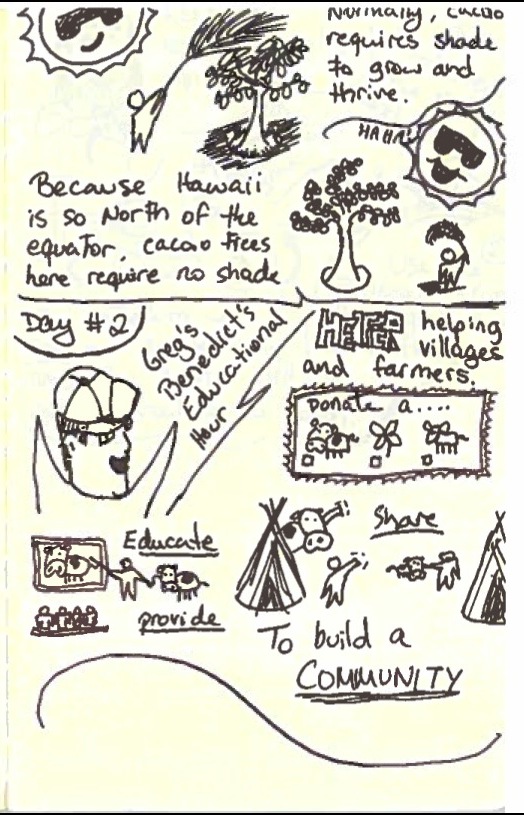 Normally, cacao
requires shade
to grow and
thrive.
HAHA!
Because Hawaii
is so North of the
equator, cacao trees
here require no shade
Day #2
Greg's
Benedict's
Educational
Hour
helping
villages
and farmers.
Donate a....
Educate
provide
Share
To build a
COMMUNITY